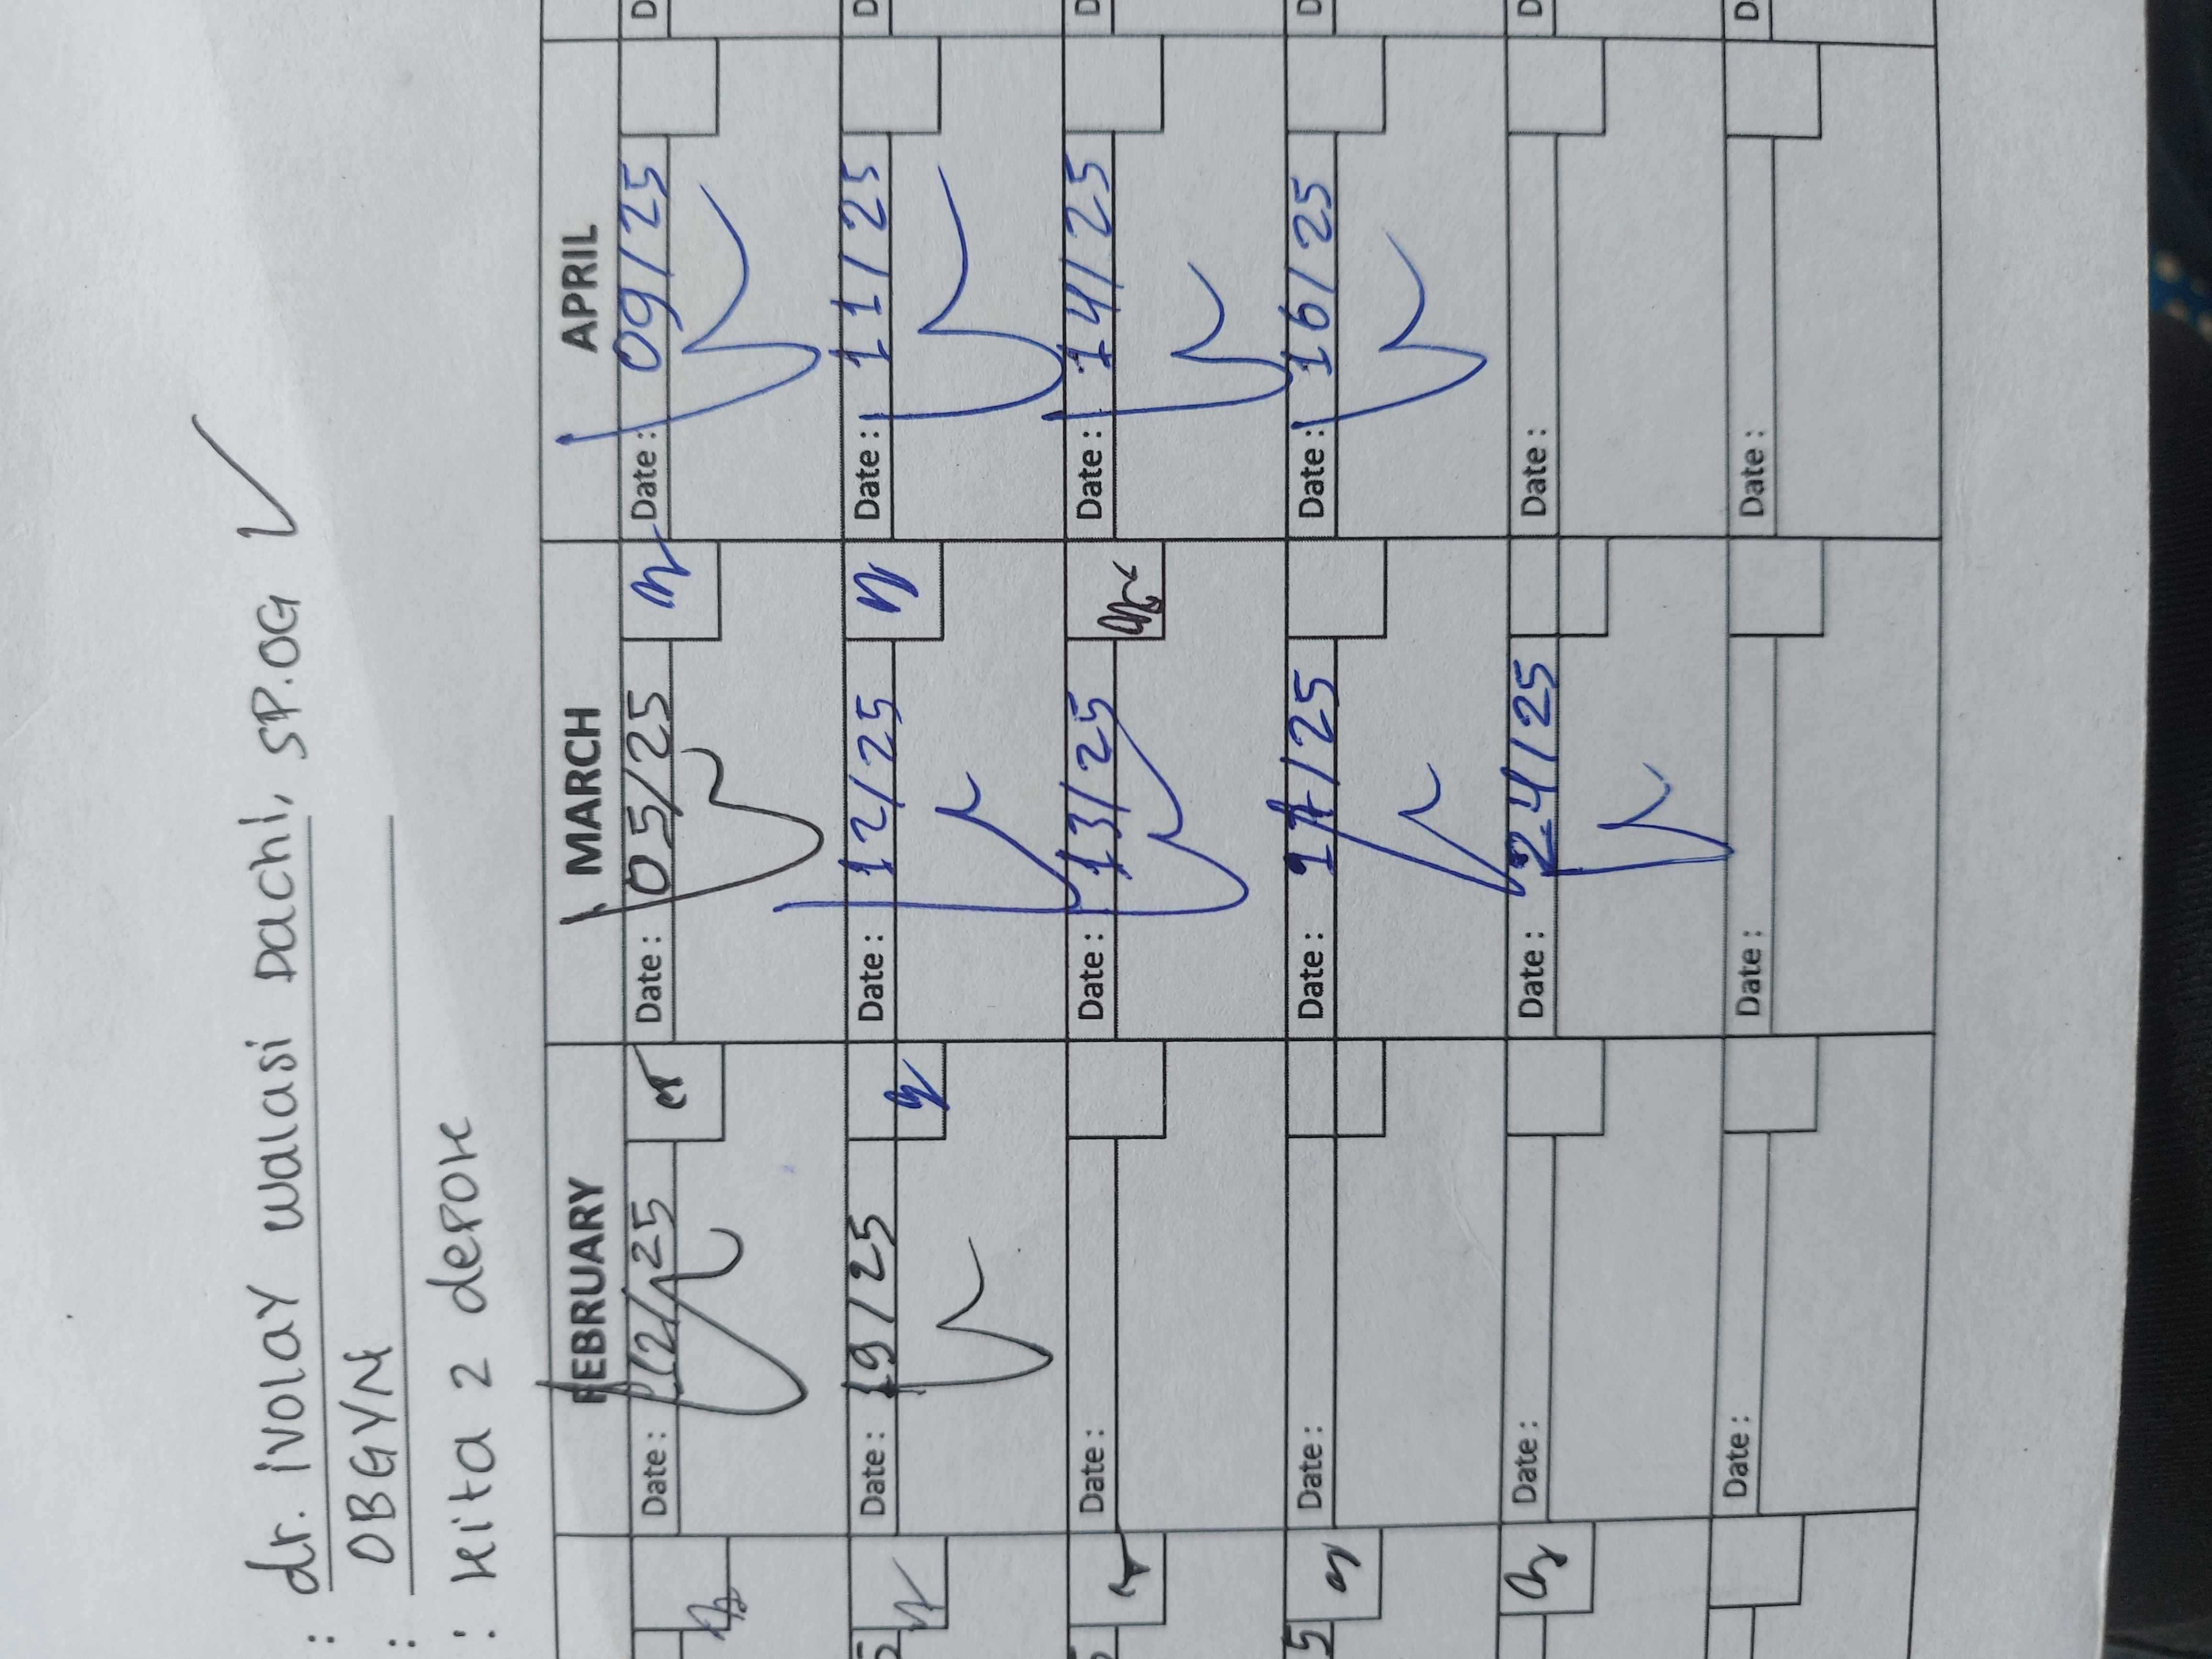 : dr. ivolay walasi Dachi, SP.OG ✓
: OBGYN
: Kita 2 depok
FEBRUARY MARCH APRIL
Date : 12/25 Date : 05/25 Date : 09/25 D
5 Date : 19/25 Date : 12/25 Date : 11/25 D
5 Date : Date : 13/25 Date : 14/25 D
5 Date : Date : /25 Date : 16/25 D
Date : Date : 24/25 Date : D
Date : Date : Date : D